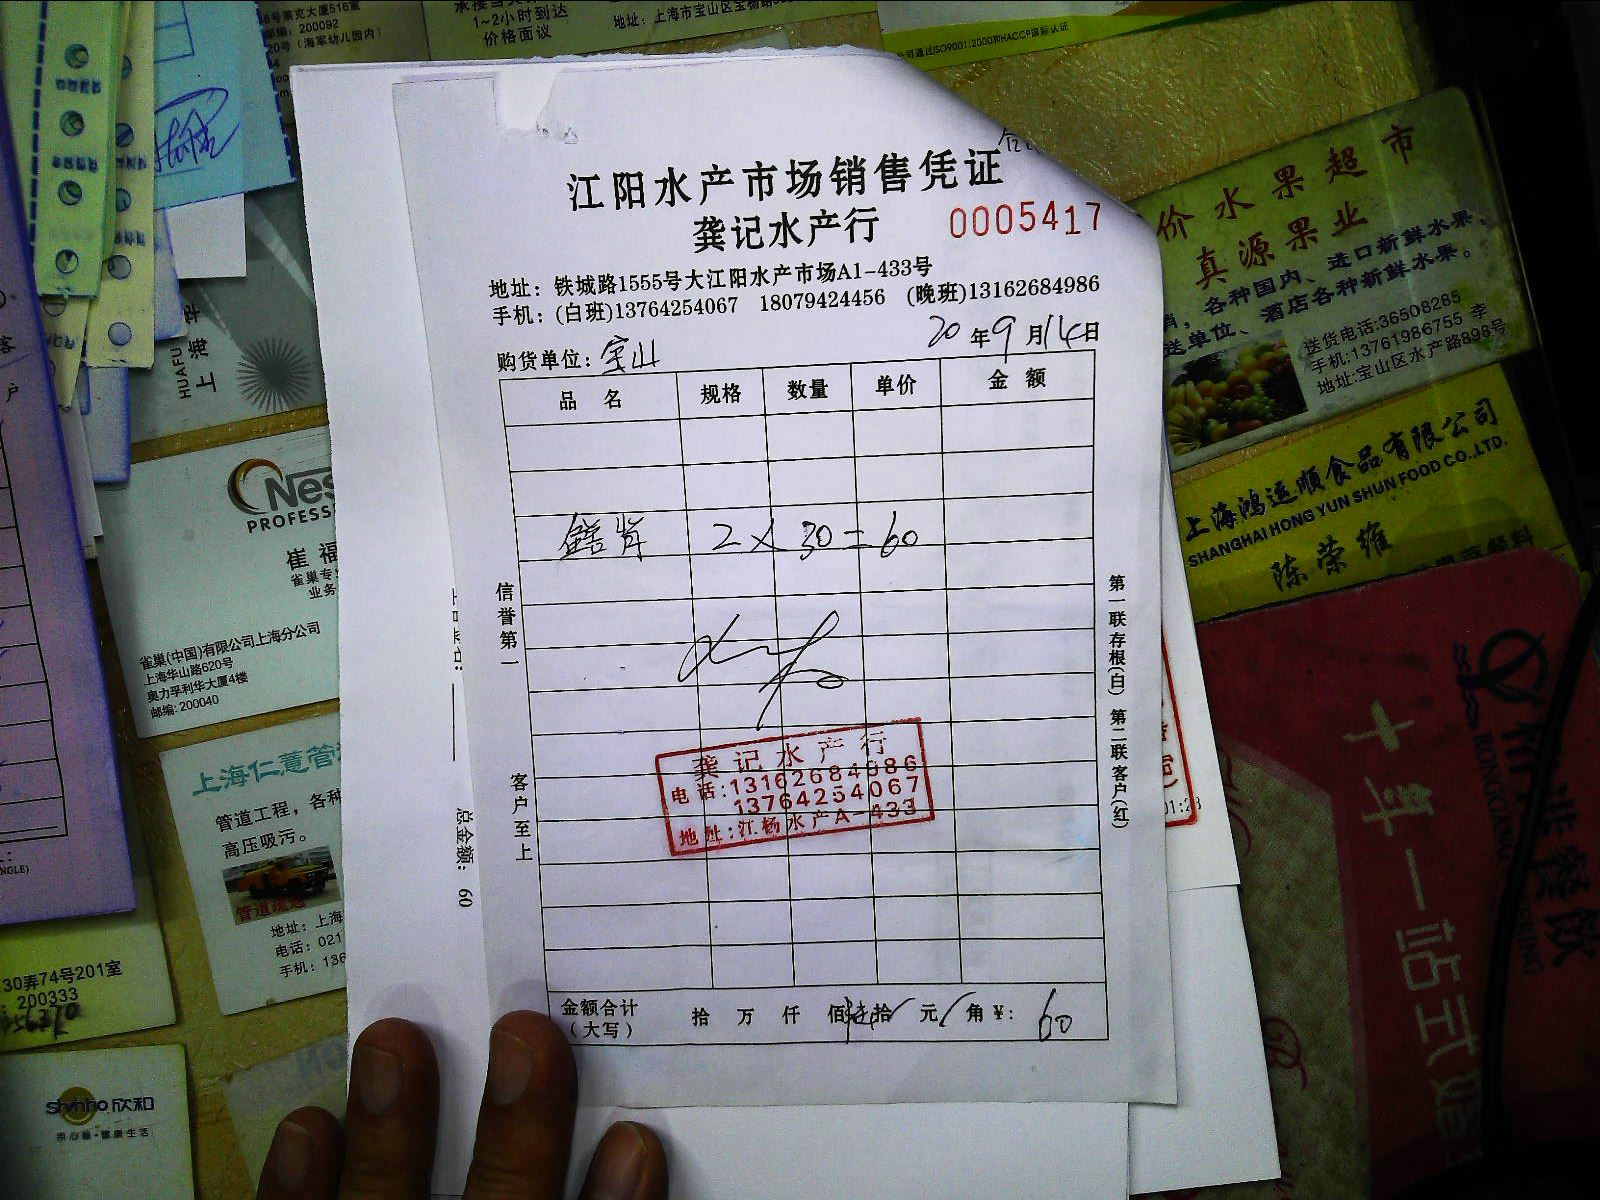 8号莱克大厦516室
邮编：200092
20号（海军幼儿园内）
1~2小时到达
价格面议
地址：上海市宝山区宝杨路
公司通过ISO9001:2000和HACCP国际认证
江阳水产市场销售凭证
龚记水产行
0005417
地址：铁城路1555号大江阳水产市场A1-433号
手机：(白班)13764254067 18079424456 (晚班)13162684986
购货单位：宝山
20 年 9 月 14 日
品 名 规格 数量 单价 金 额
鳝背 2×30=60
信誉第一
客户至上
第一联存根(白) 第二联客户(红)
龚记水产行
电话:13162684986
13764254067
地址:江杨水产A-433
金额合计（大写） 拾 万 仟 佰 陆拾 元 角 ￥：60
总金额：60
价水果超市
真源果业
各种国内、进口新鲜水果，
送单位、酒店各种新鲜水果。
送货电话:36508285
手机:13761986755 李
地址:宝山区水产路898号
上海鸿运顺食品有限公司
SHANGHAI HONG YUN SHUN FOOD CO.,LTD.
陈荣维
十年一站式
RONGGANG
HUAFU
上海
Nes
PROFESS
崔福
雀巢专
业务
雀巢(中国)有限公司上海分公司
上海华山路620号
奥力孚利华大厦4楼
邮编: 200040
上海仁薏管
管道工程，各种
高压吸污。
管道疏通
地址：上海
电话：021
手机：136
30弄74号201室
200333
shinho欣和
01:23